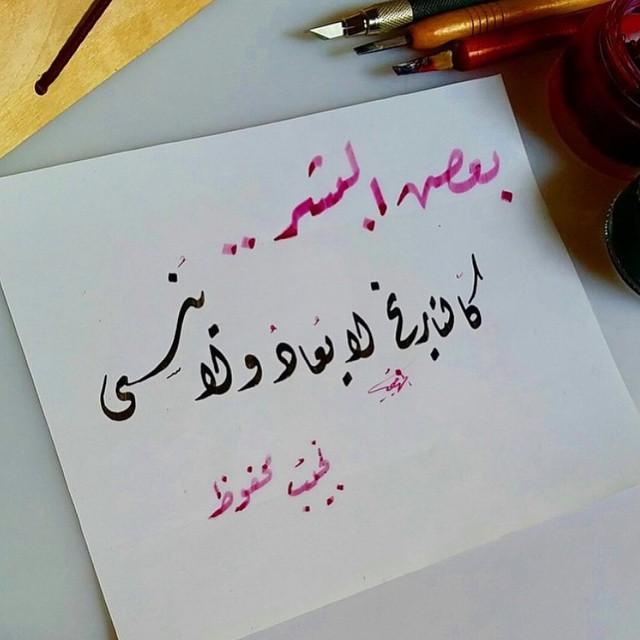 بعض البشر ..
كالتاريخ لا يُعادُ ولا يُنسى
نجيب محفوظ